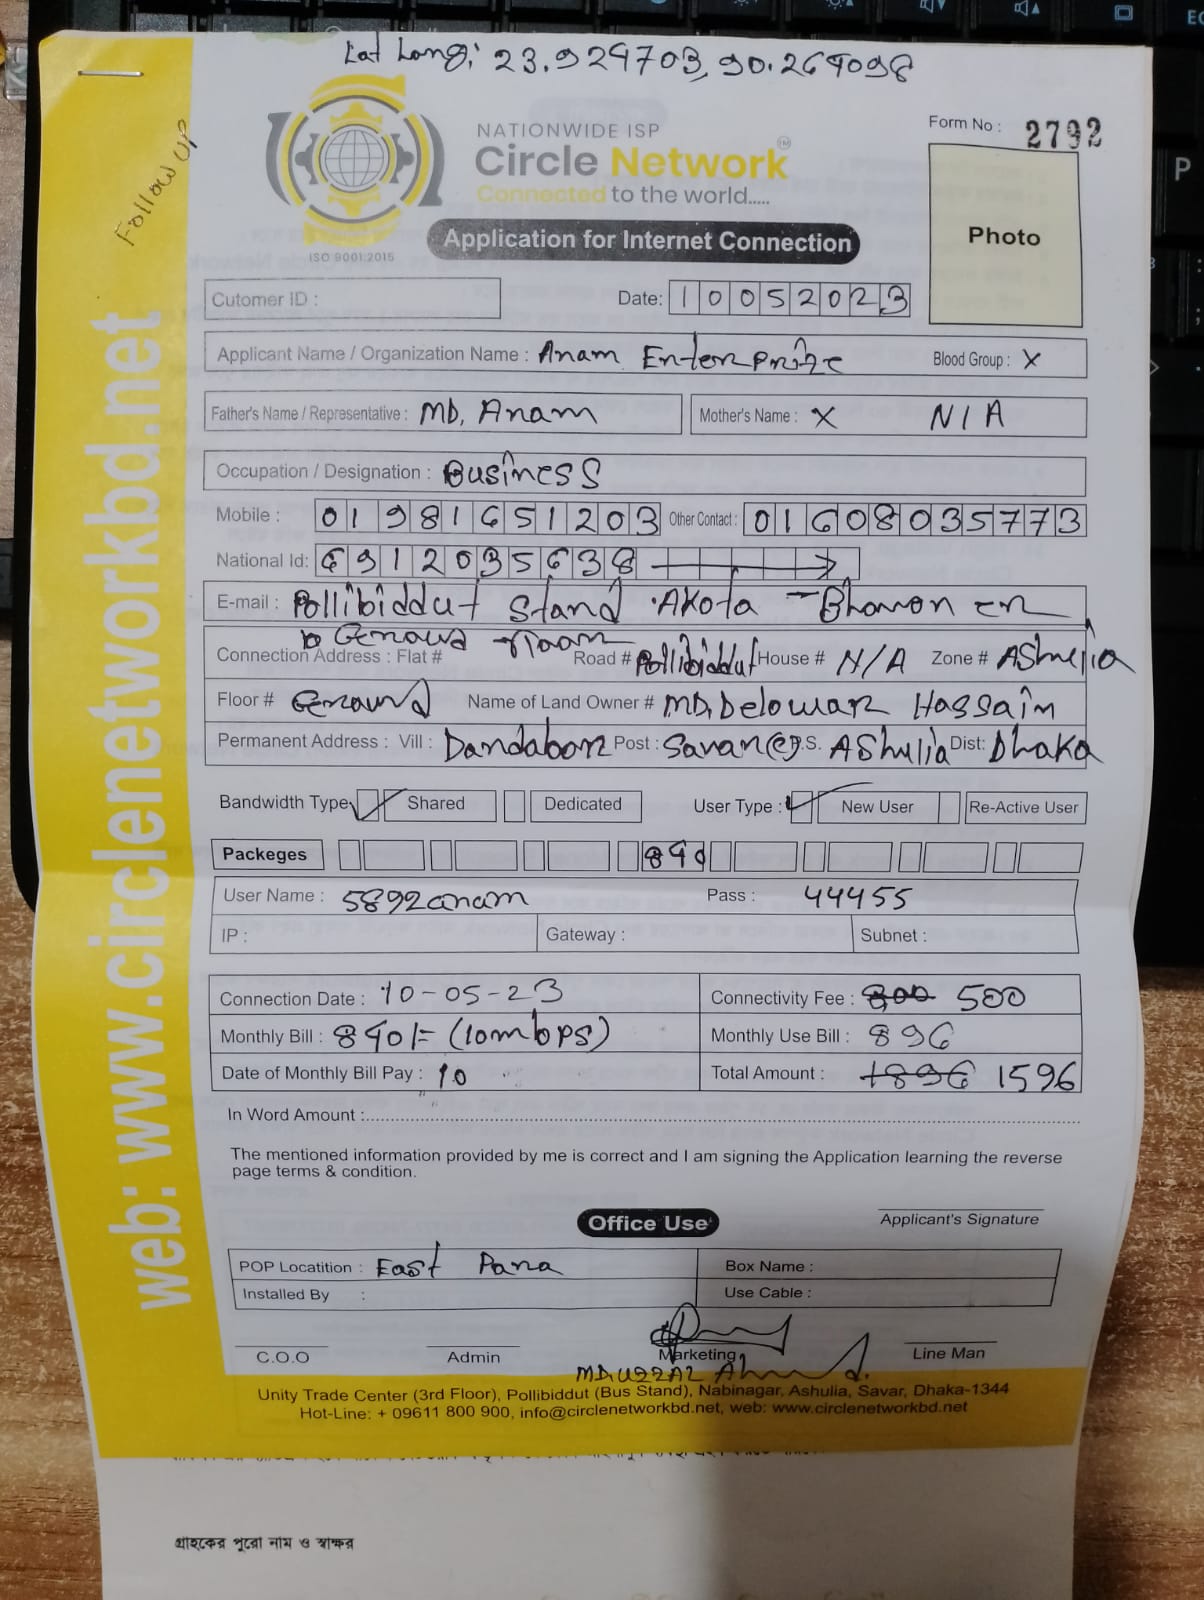 Lat Long: 23.924703, 90.269098
Follow UP
NATIONWIDE ISP
Circle Network™
Connected to the world.....
ISO 9001:2015
Form No : 2792
Photo
Application for Internet Connection
Cutomer ID :
Date: 10052023
Applicant Name / Organization Name : Anam Enterprize Blood Group : X
Father's Name / Representative : MD, Anam Mother's Name : X N/A
Occupation / Designation : Business
Mobile : 01981651203 Other Contact : 01608035773
National Id: 6912035638
E-mail : Pollibiddut Stand Akota Bhavon er
Ground Floor
Connection Address : Flat # Road # Pollibiddut House # N/A Zone # Ashulia
Floor # Ground Name of Land Owner # MD, Delowar Hossain
Permanent Address : Vill : Dandabor Post : Savar P.S. Ashulia Dist: Dhaka
Bandwidth Type Shared Dedicated User Type : New User Re-Active User
Packeges 890
User Name : 5892anam Pass : 44455
IP : Gateway : Subnet :
Connection Date : 10-05-23 Connectivity Fee : 800 500
Monthly Bill : 890/= (10mbps) Monthly Use Bill : 896
Date of Monthly Bill Pay : 10 Total Amount : 1896 1596
In Word Amount :
The mentioned information provided by me is correct and I am signing the Application learning the reverse
page terms & condition.
Applicant's Signature
Office Use
POP Locatition : East Para Box Name :
Installed By : Use Cable :
C.O.O Admin Marketing Line Man
MD, UZZAL
Unity Trade Center (3rd Floor), Pollibiddut (Bus Stand), Nabinagar, Ashulia, Savar, Dhaka-1344
Hot-Line: + 09611 800 900, info@circlenetworkbd.net, web: www.circlenetworkbd.net
web: www.circlenetworkbd.net
গ্রাহকের পুরো নাম ও স্বাক্ষর